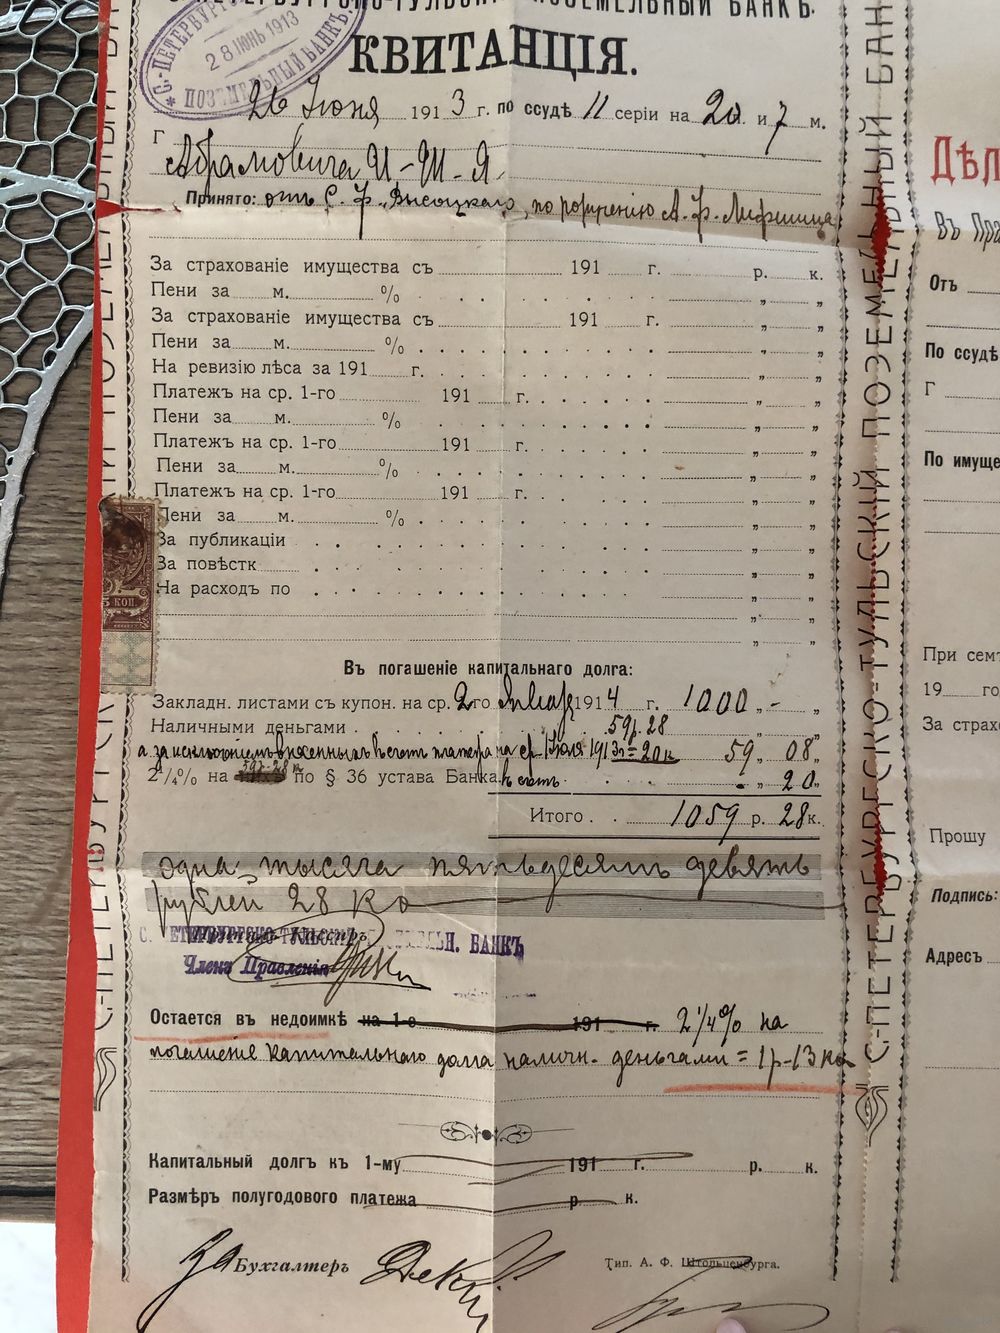 С.-ПЕТЕРБУРГСКО-ТУЛЬСКІЙ ПОЗЕМЕЛЬНЫЙ БАНКЪ.
КВИТАНЦІЯ.
С.-ПЕТЕРБУРГСКО-
28 ІЮНЬ 1913
ПОЗЕМЕЛЬНЫЙ БАНКЪ
26 Іюня 1913 г. по ссудѣ 11 серіи на 20 л. и 7 м.
Г Абрамовича И-Ш-Я.
Принято: отъ С. Ф. Высоцкаго, по порученію А. Ф. Лифшица
За страхованіе имущества съ 191 г. р. к.
Пени за м. % „ „
За страхованіе имущества съ 191 г. „ „
Пени за м. % „ „
На ревизію лѣса за 191 г. „ „
Платежъ на ср. 1-го 191 г. „ „
Пени за м. % „ „
Платежъ на ср. 1-го 191 г. „ „
Пени за м. % „ „
Платежъ на ср. 1-го 191 г. „ „
Пени за м. % „ „
За публикаціи „ „
За повѣстк „ „
На расходъ по „ „
5 КОП.
Въ погашеніе капитальнаго долга:
Закладн. листами съ купон. на ср. 2го Января 1914 г. 1000 „ - „
Наличными деньгами 59р. 28
а за исключеніемъ внесенныхъ въ счетъ платежа на ср. 1 Іюля 1913г = 20к 59 „ 08 „
2¼% на 59р-28к по § 36 устава Банка въ счетъ - „ 20 „
Итого 1059 р. 28 к.
одна тысяча пятьдесятъ девять
рублей 28 ко
С. ПЕТЕРБУРГСКО-ТУЛЬСК ПОЗЕМЕЛЬН. БАНКЪ
Членъ Правленія
Остается въ недоимкѣ на 1-е 191 г. 2¼% на
погашеніе капитальнаго долга наличн. деньгами = 1р-13ко
Капитальный долгъ къ 1-му 191 г. р. к.
Размѣръ полугодового платежа р. к.
За Бухгалтеръ
Тип. А. Ф. Штольценбурга.
С.-ПЕТЕРБУРГСКО-ТУЛЬСКІЙ ПОЗЕМЕЛЬНЫЙ БАН
С.-ПЕТЕРБУРГСКО-ТУЛЬСКІЙ ПОЗЕМЕЛЬНЫЙ БАН
Дѣл
Въ Пра
Отъ
По ссудѣ
Г
По имуще
При сем
19 го
За страхо
Прошу
Подпись:
Адресъ